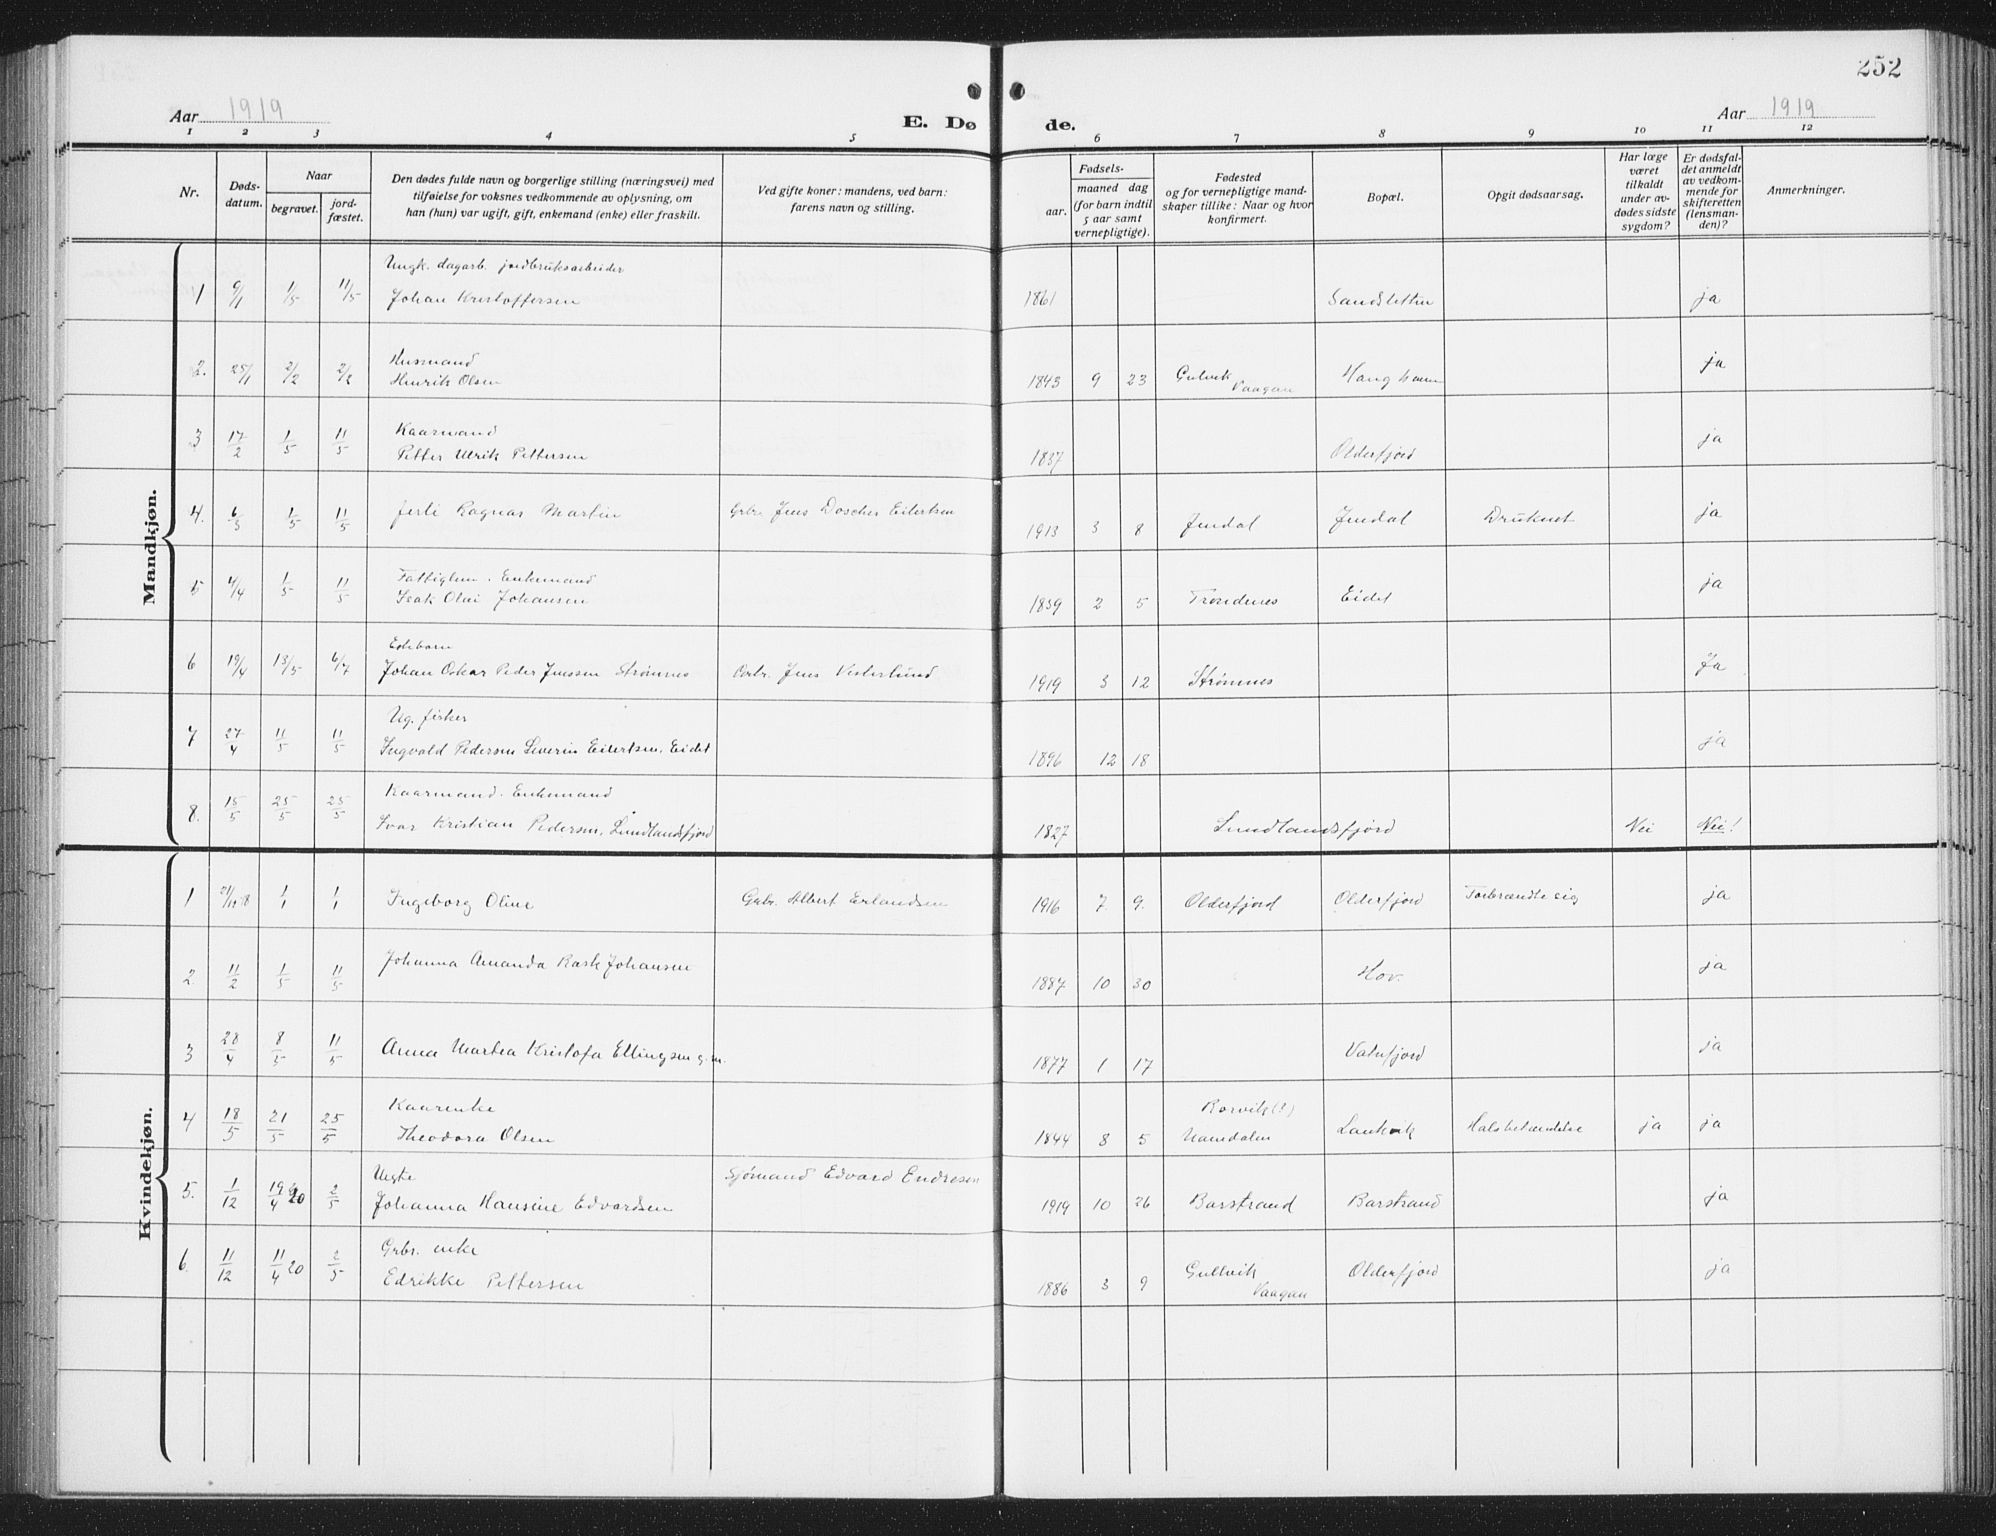 252
Aar 1919
E. Dø de.
Aar 1919
1 2 3 4 5 6 7 8 9 10 11 12
Nr.
Døds-
datum.
Naar
begravet.
jord-
fæstet.
Den dødes fulde navn og borgerlige stilling (næringsvei) med
tilføielse for voksnes vedkommende av oplysning, om
han (hun) var ugift, gift, enkemand (enke) eller fraskilt.
Ved gifte koner: mandens, ved barn:
farens navn og stilling.
Fødsels-
aar.
maaned dag
(for barn indtil
5 aar samt
vernepligtige).
Fødested
og for vernepligtige mand-
skaper tillike: Naar og hvor
konfirmert.
Bopæl.
Opgit dødsaarsag.
Har læge
været
tilkaldt
under av-
dødes sidste
sygdom?
Er dødsfal-
det anmeldt
av vedkom-
mende for
skifteretten
(lensman-
den)?
Anmerkninger.
Mandkjøn.
Ungk. dagarb. jordbruksarbeider
1 9/1 1/5 11/5 Johan Kristoffersen 1861 Sandsletten ja
Husmand
2. 25/1 2/2 2/2 Henrik Olsen 1843 9 23 Gulvik Vaagan ja
Kaarmand
3 17/2 1/5 11/5 Petter Ulrik Pettersen 1837 Olderfjord ja
4. 6/3 1/5 11/5 Ragnar Martin Grbr. Jens Doscher Eilertsen 1913 3 8 Jendal Jendal Druknet ja
Enkemand
5 4/4 1/5 11/5 Isak Olai Johansen 1839 2 5 Trondenes Eidet ja
6 19/4 13/5 6/7 Johan Oskar Peder Jenssen Strømnes Jens Vesterlund 1919 3 12 Strømnes Ja
Ug. fisker
7 27/4 11/5 11/5 Ingvald Pedersen Severin Eilertsen, Eidet 1896 12 18 ja
Kaarmand. Enkemand
8. 15/5 25/5 25/5 Ivar Kristian Pedersen, Sundlandsfjord 1827 Sundlandsfjord Nei Nei!
Kvindekjøn.
1 21/12 18 1/1 1/1 Ingeborg Oline Gbr. Albert Erlandsen 1916 7 9. Olderfjord Olderfjord Forbrændte sig ja
2. 11/2 1/5 11/5 Johanna Amanda Rask Johansen 1887 10 30 Hov. ja
3 28/4 8/5 11/5 Anna Martea Kristofa Ellingsen g.m. 1877 1 17 Vatnfjord ja
Kaarenke
Rørvik(?)
4 18/5 21/5 25/5 Theodora Olsen 1844 8 5 Namdalen Laukvik Halsbetændelse ja ja
Uegte
Sjømand Edvard Endresen
5. 1/12 19/4 20 2/5 Johanna Hansine Edvardsen 1919 10 26 Barstrand Barstrand ja
Grbr. enke
6. 11/12 11/4 20 2/5 Edrikke Pettersen 1886 3 9 Gullvik Vaagan Olderfjord ja